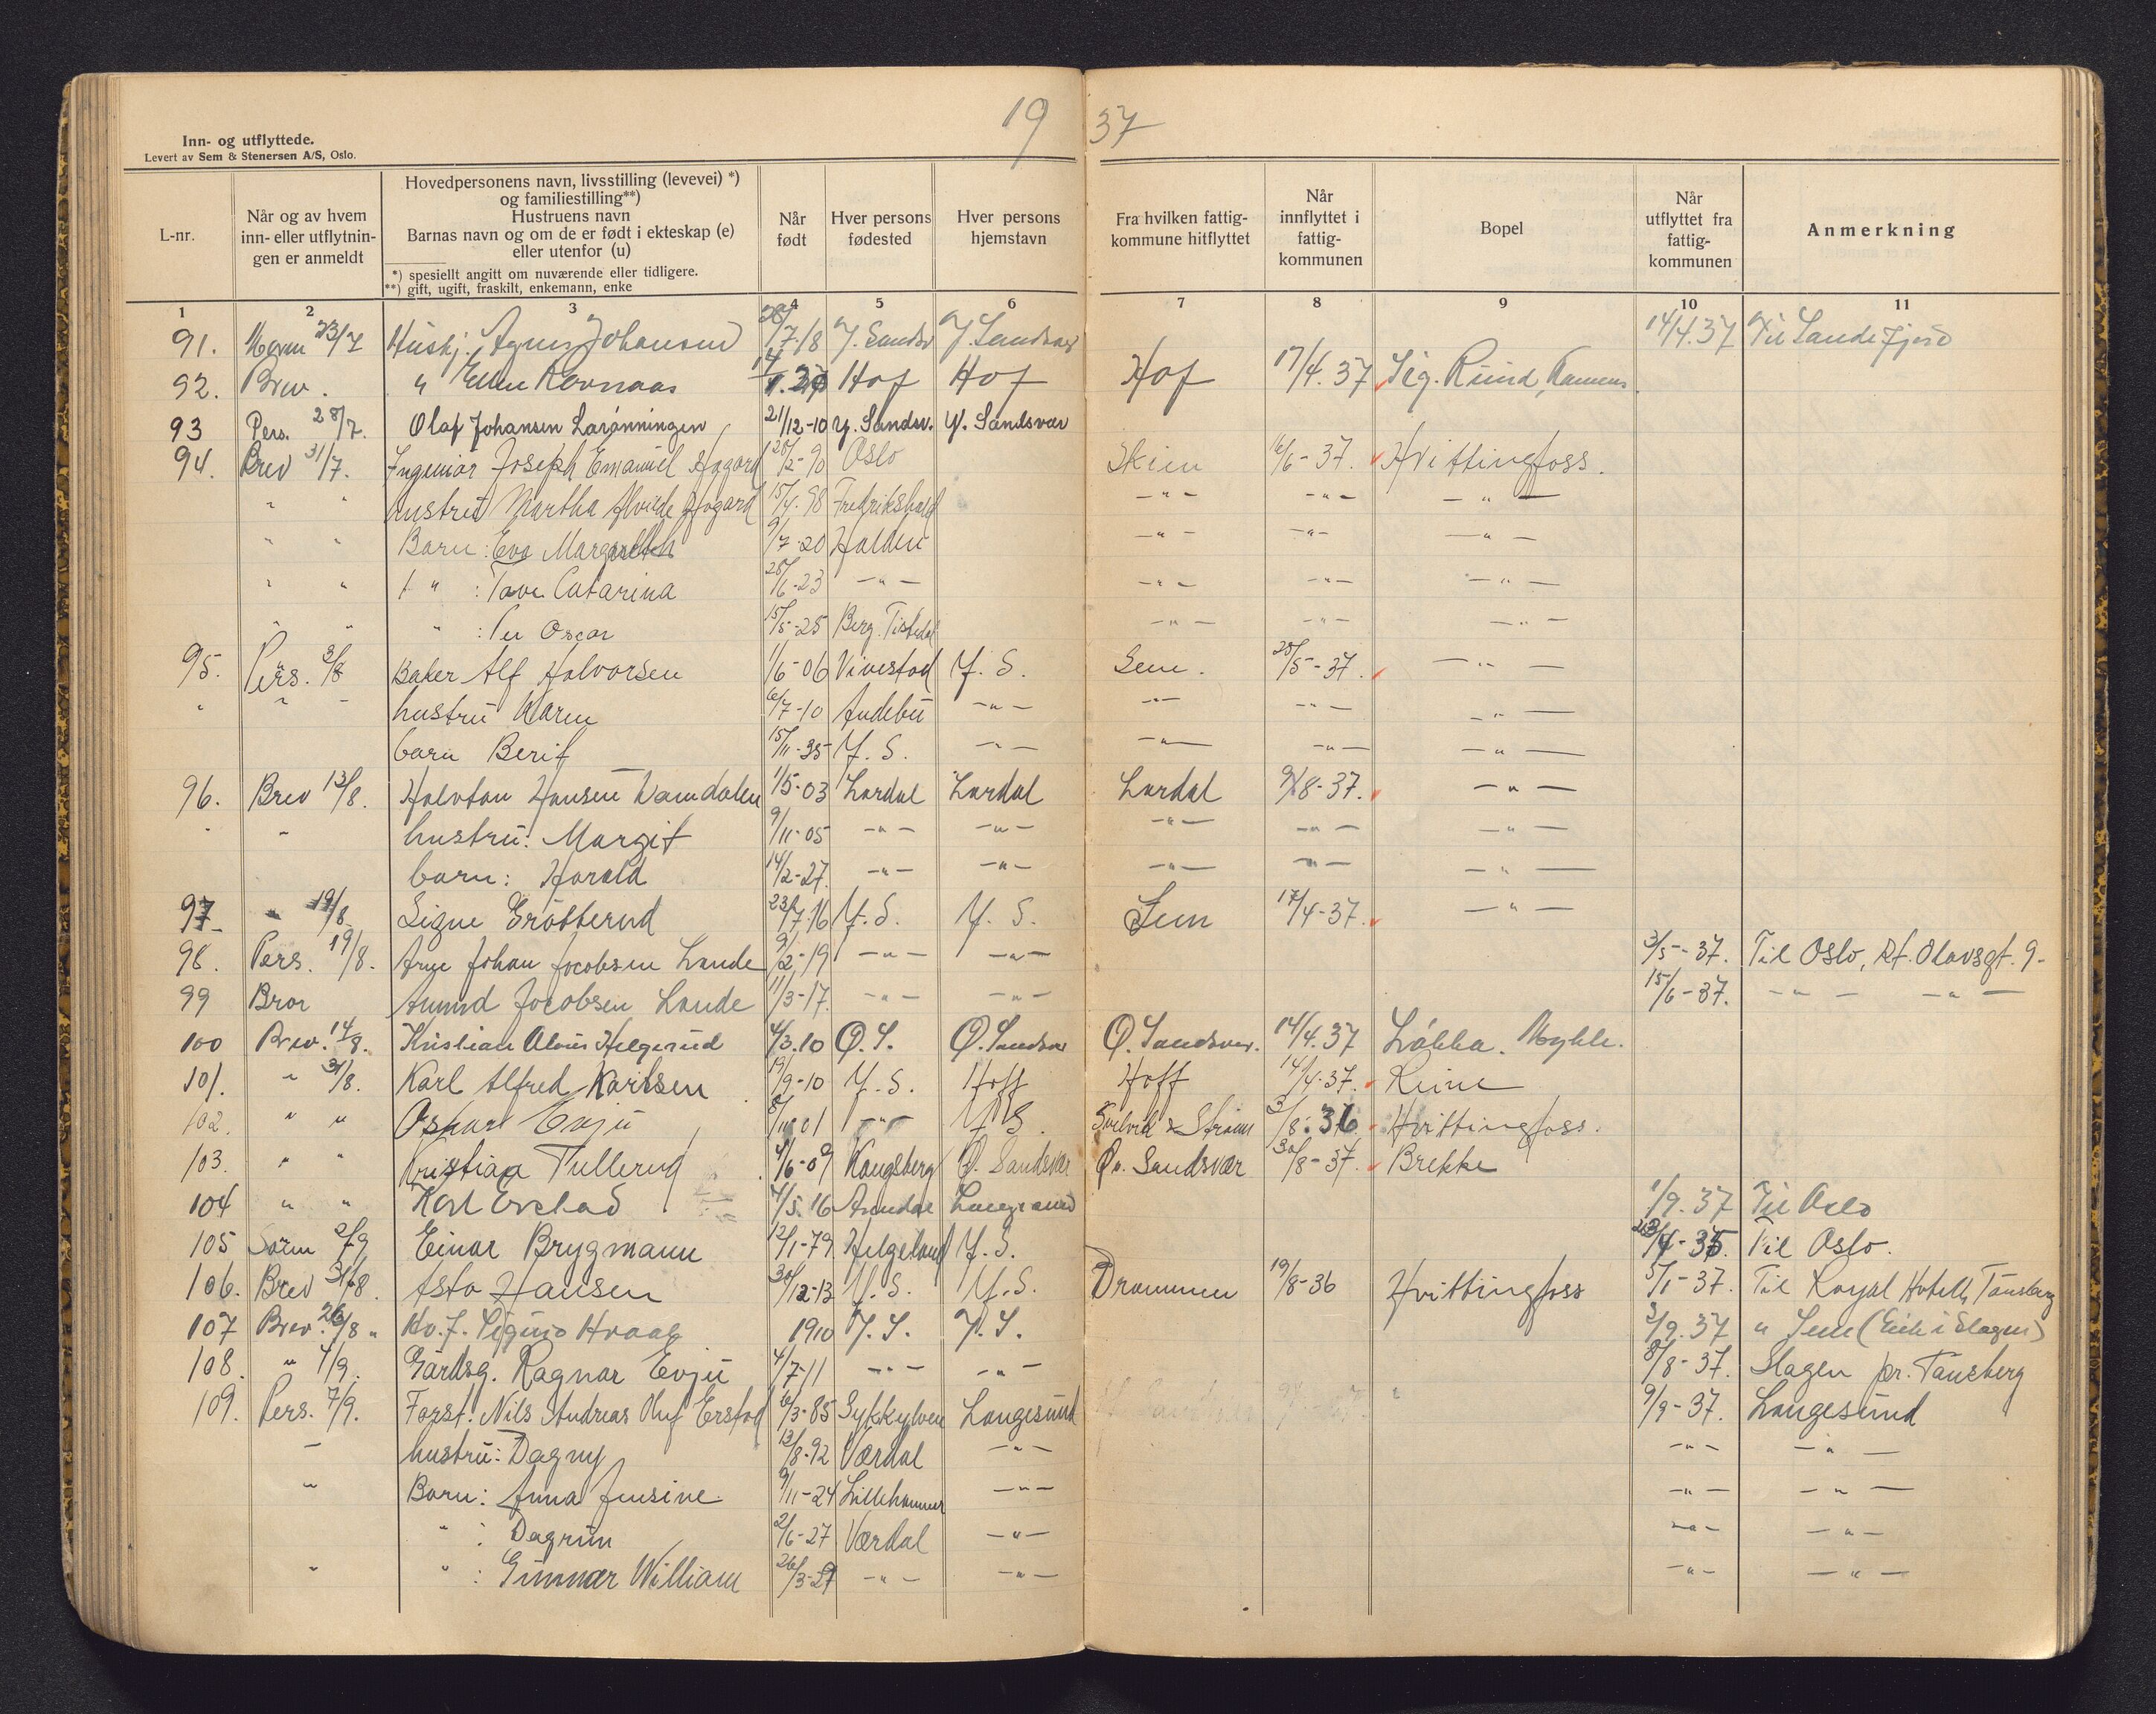 19 37
Inn- og utflyttede.
Levert av Sem & Stenersen A/S, Oslo.
L-nr.
Når og av hvem inn- eller utflytnin-gen er anmeldt
Hovedpersonens navn, livsstilling (levevei) *)
og familiestilling**)
Hustruens navn
Barnas navn og om de er født i ekteskap (e)
eller utenfor (u)
*) spesiellt angitt om nuværende eller tidligere.
**) gift, ugift, fraskilt, enkemann, enke
Når født
Hver persons fødested
Hver persons hjemstavn
Fra hvilken fattig-kommune hitflyttet
Når innflyttet i fattig-kommunen
Bopel
Når utflyttet fra fattig-kommunen
Anmerkning
1 2 3 4 5 6 7 8 9 10 11
91. 23/7 Hushj. Agnes Johansen 28/7-18 Y. Sandsv Y. Sandsvær 14/4.37 Til Sandefjord
92. Brev. " Ellen Hof Hof Hof 17/4.37 Sig. Rund,
93 Pers. 28/7. Olaf Johansen Larønningen 21/12-10 Y. Sandsv. Y. Sandsvær
94. Brev 31/7. Ingeniør Joseph Emanuel Hagard 20/2-90 Oslo Skien 16/6-37. Hvittingfoss.
" " hustru Martha Alvilde Hagard 15/4.98 Fredrikshald -"- -"- -"-
" " Barn: Eva Margareth 9/7-20 Halden -"- -"- -"-
" " " : Tove Catarina 28/6-23 -"- -"- -"- -"-
" " " : Per Oscar 15/5-25 Berg. Tistedal -"- -"- -"-
95. Pers. 3/8 Baker Alf Halvorsen 1/6-06 Vivestad Y. S. Sem. 28/5-37. -"-
" " - hustru Karen 6/7-10 Andebu -"- -"- -"- -"-
barn Berit 15/11-35 Y. S. -"- -"- -"- -"-
96. Brev 13/8. Halvtan Hansen 1/5-03 Lardal Lardal Lardal 9/8-37. -"-
" " hustru: Margit 9/11-05 -"- -"- -"- -"- -"-
barn: Harald 14/2-27. -"- -"- -"- -"- -"-
97 " 19/8. Signe Grøtterud 23/7.16 Y. S. Y. S. Sem 17/4-37. -"-
98. Pers. 19/8. Arne Johan Jacobsen Lande 9/2-19 -"- -"- 3/5-37. Til Oslo, St. Olavsgt. 9.
99 Bror Amund Jacobsen Lande 11/3-17. -"- -"- 15/6-37. -"- -"-
100 Brev. 14/8. Kristian Helgerud 4/3.10 Ø. S. Ø. Sandsvær Ø. Sandsvær. 14/4.37 Løkka. Mykle.
101. " 31/8. Karl Alfred Karlsen 19/9-10 Y. S. Hoff Hoff 14/4-37. Reine
102. " " Oskar Evju 8/11 01 -"- Y S. Svelvik & Strøm 3/8.36 Hvittingfoss.
103. " " Kristian Tullerud 4/6-09 Kongsberg Ø. Sandsvær Øv. Sandsvær 30/8-37. Brekke
104 " " Karl Erstad 4/5.16 Langesund 1/9.37 Til Oslo
105 2/9 Einar Brygmann 12/1-79. Helgeland Y. S. Til Oslo.
106. Brev 31/8. Asta Hansen 30/12-13 Y. S. Y. S. Drammen 19/8-36 Hvittingfoss 5/1-37. Til Royal Hotell, Tønsberg
107 Brev. 26/8 " 1910 Y. S. Y. S. 3/9.37 " Sem (Eik i Slagen)
108. " 4/9. Gårdsg. Ragnar Evju 4/7-11 -"- -"- 8/8-37. Slagen pr. Tønsberg
109. Pers. 7/9. Forst. Nils Andreas Erstad 6/3-85 Sykkylven Langesund 9/9-37. Langesund
- hustru: Dagny 13/8.92 Værdal -"- -"- -"-
" Barn: Anna Jensine 9/11-24 Lillehammer -"- -"- -"-
" : Dagrun 2/6-27 Værdal -"- -"- -"-
" " : Gunnar William 26/3-29 -"- -"- -"- -"-